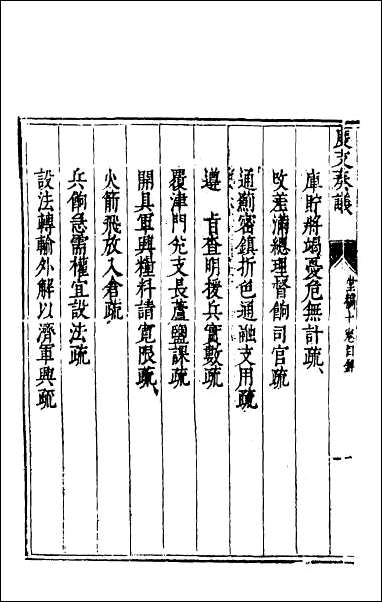 度支奏議 堂稿十卷目錄 一
庫貯將竭憂危無計疏
攺差滿總理督餉司官疏
通薊密鎮折色通融支用疏
遵 旨查明援兵實數疏
覆津門兌支長蘆鹽課疏
開具軍興糧料請寬限疏
火箭飛放入倉疏
兵餉急需權宜設法疏
設法轉輸外解以濟軍興疏